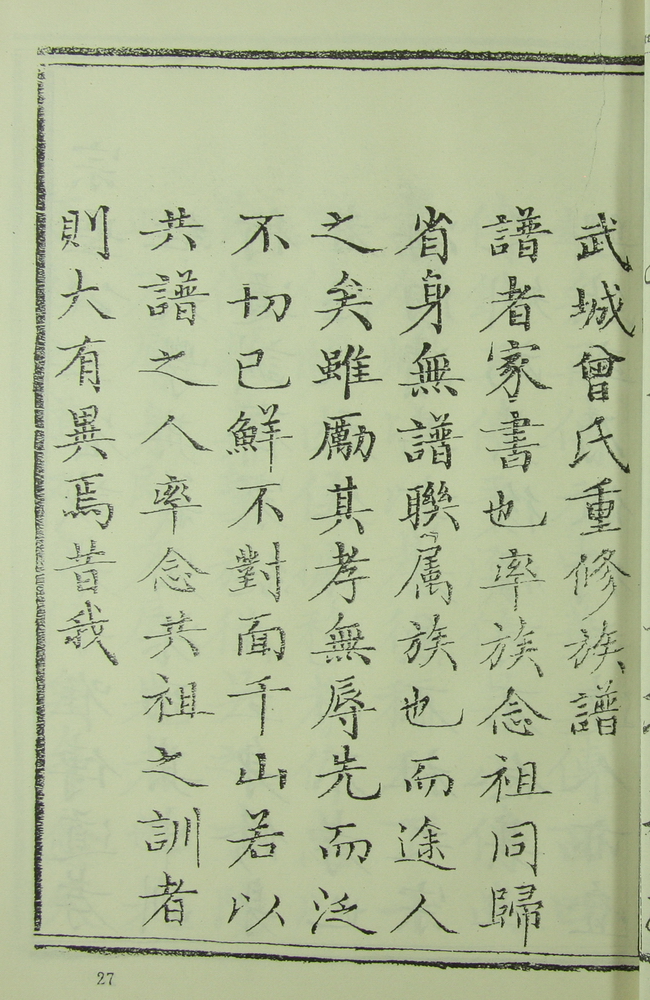 武城曾氏重修族譜
譜者家書也率族念祖同歸
省身無譜聯属族也而途人
之矣雖勵其孝無辱先而泛
不切已鮮不對面千山若以
共譜之人率念共祖之訓者
則大有異焉昔我
27